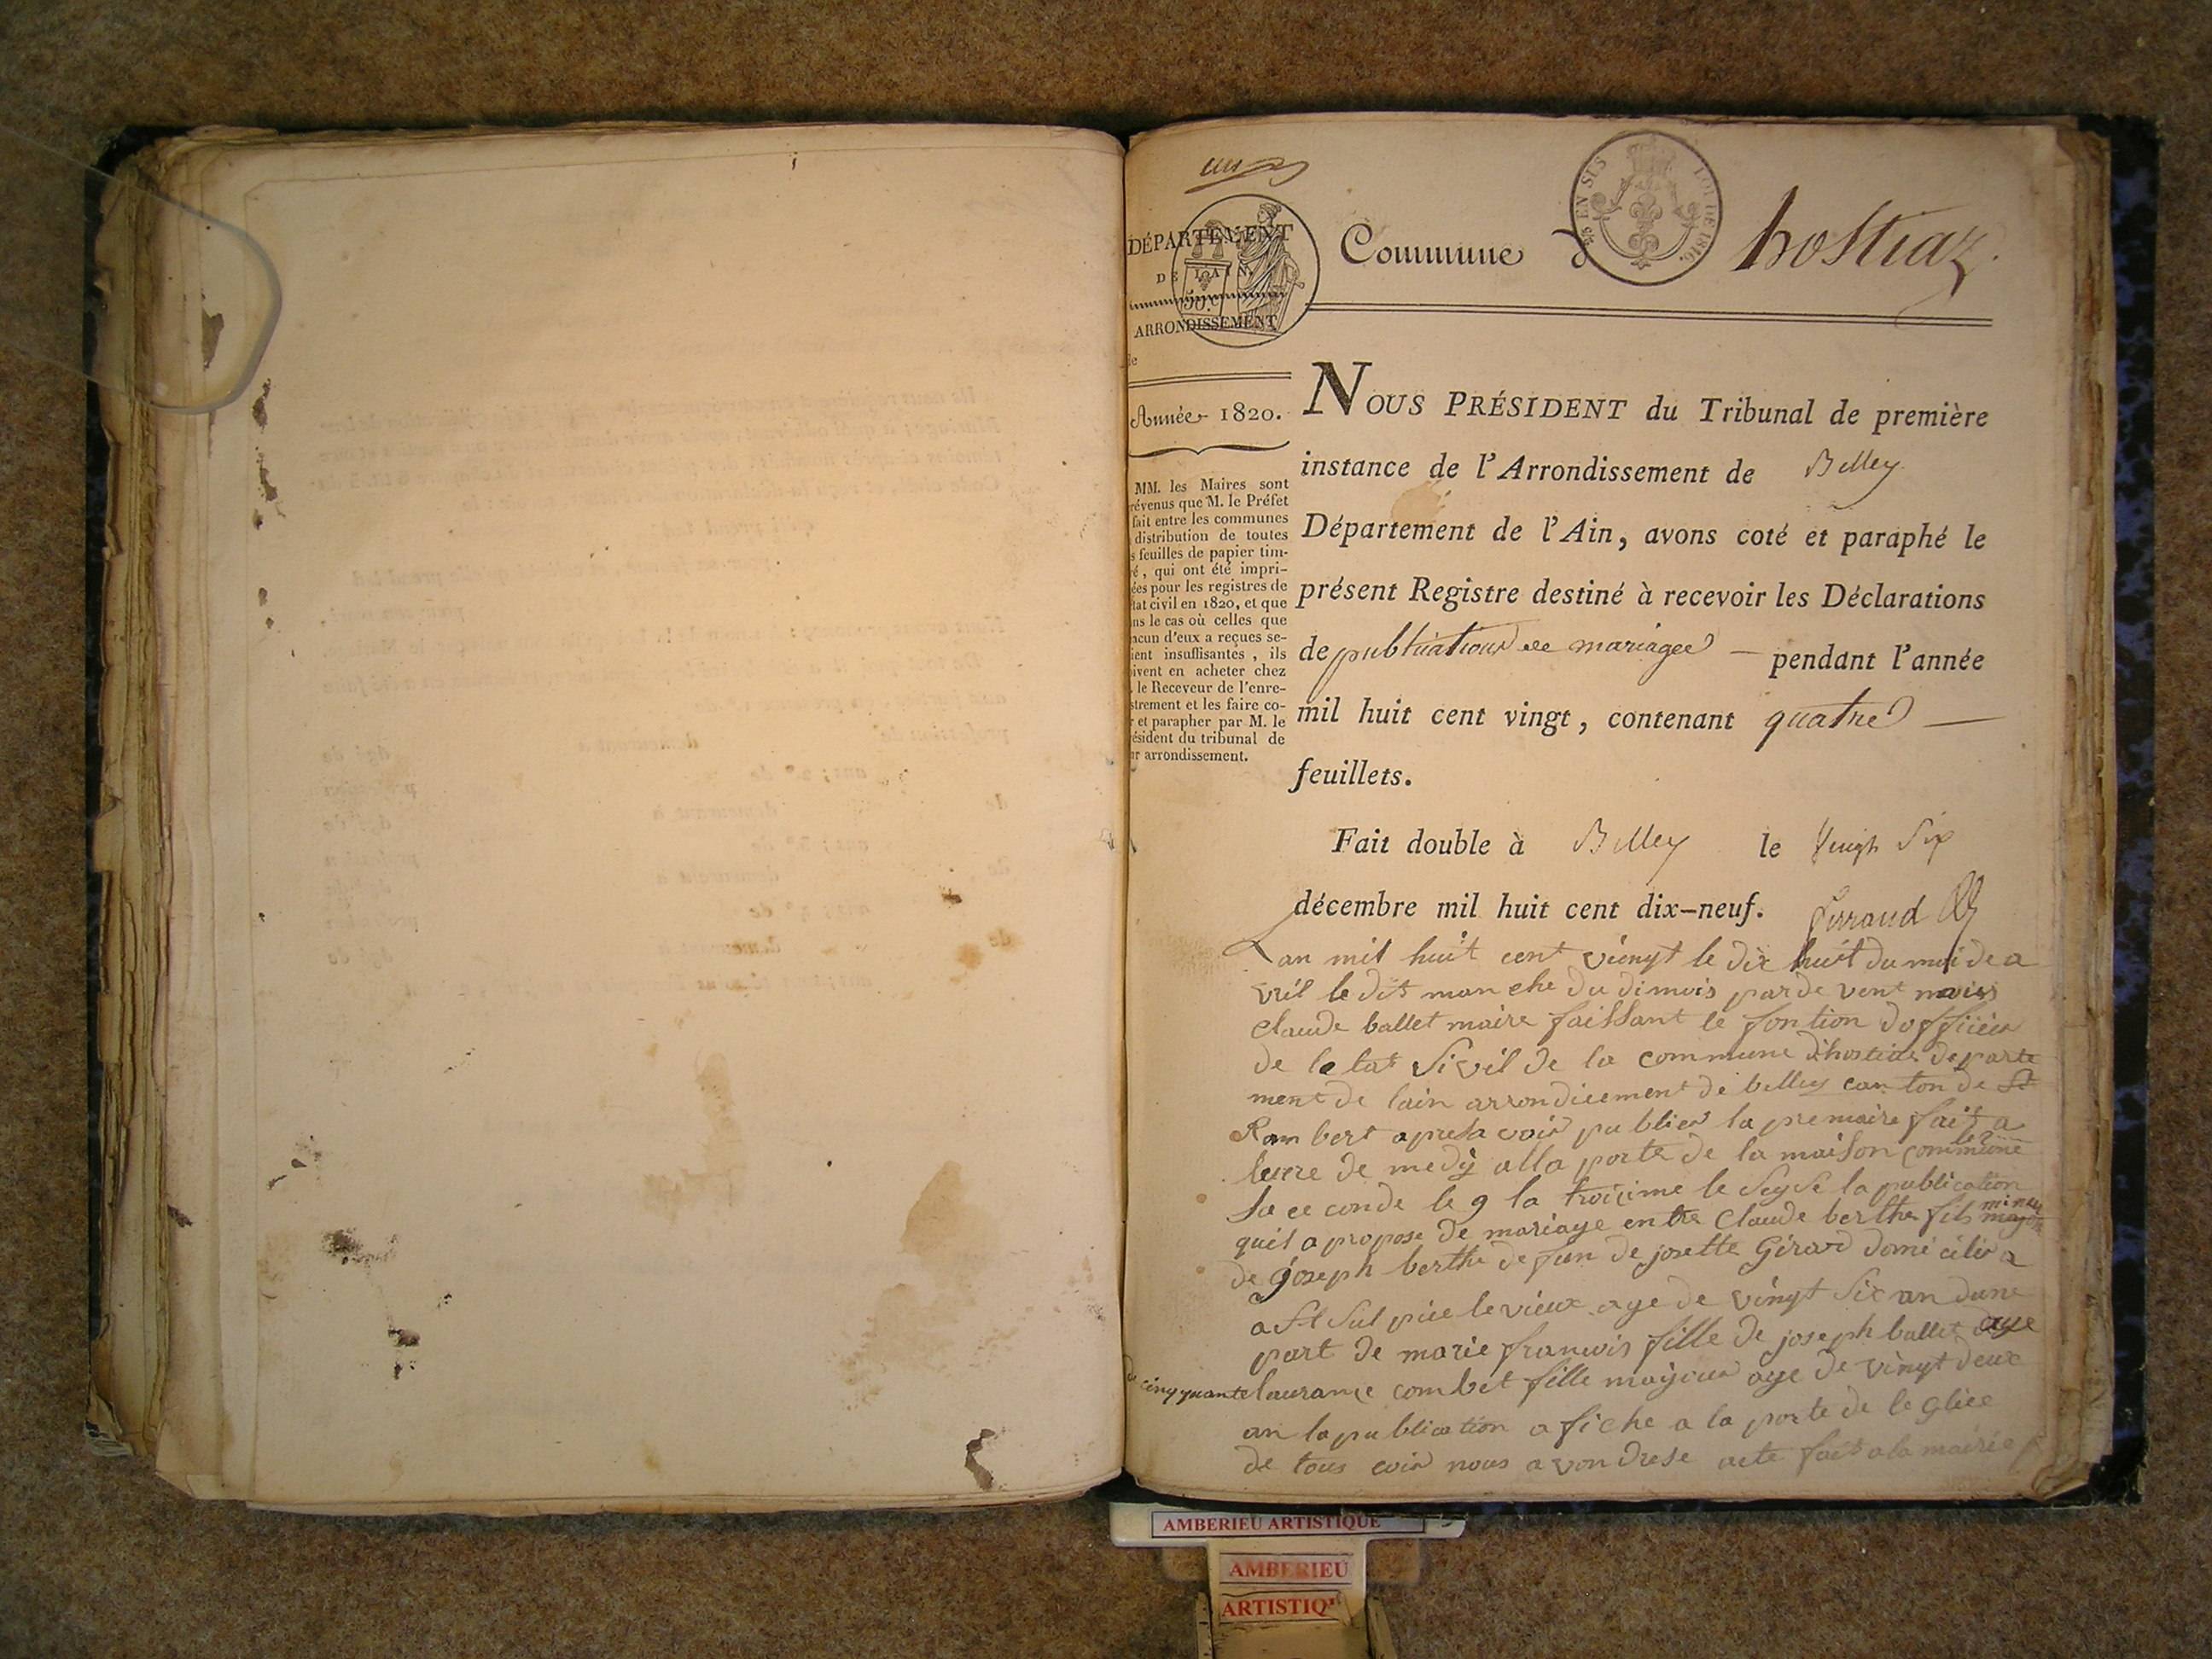 un
DÉPARTEMENT
DE L'AIN.
50.C
ARRONDISSEMENT
de
Année 1820.
MM. les Maires sont
révenus que M. le Préfet
fait entre les communes
distribution de toutes
s feuilles de papier tim-
ré, qui ont été impri-
ées pour les registres de
tat civil en 1820, et que
ns le cas où celles que
acun d'eux a reçues se-
ient insuffisantes, ils
oivent en acheter chez
. le Receveur de l'enre-
strement et les faire co-
r et parapher par M. le
résident du tribunal de
ur arrondissement.
Commune d hostiaz.
LOI DE 1816.
NOUS PRÉSIDENT du Tribunal de première
instance de l'Arrondissement de Belley
Département de l'Ain, avons coté et paraphé le
présent Registre destiné à recevoir les Déclarations
de publications de mariages — pendant l'année
mil huit cent vingt, contenant quatre —
feuillets.
Fait double à Belley le Vingt Six
décembre mil huit cent dix-neuf.
Lan mil huit cent vièngt le dix huit du moi de a
vril le dit manche du di mois par de vent nous
Claude ballet maire faissant le fontion dofficièr
de le tat Sivil de la commune dhostias departe
ment de lain arrondicement de belley can ton de St
Ram bert apresa voir publier la premaire fait a
leure de medy alla porte de la maison commune le 2
la ce conde le 9 la troicime le Seyse la publication
quil a propose de mariage entre Claude berthe fils major mineur
de joseph berthe defun de josette Gérard domicilier a
a St Sulpice le vieux age de vingt Six an dune
part de marie francois fille de joseph ballet age
de cinqquante laurance combet fille majeur age de vingt deux
an la publication afiche a la porte de le gliee
de tous coir nous avon drese acte fait a la mairie
AMBERIEU ARTISTIQUE
AMBERIEU
ARTISTIQ